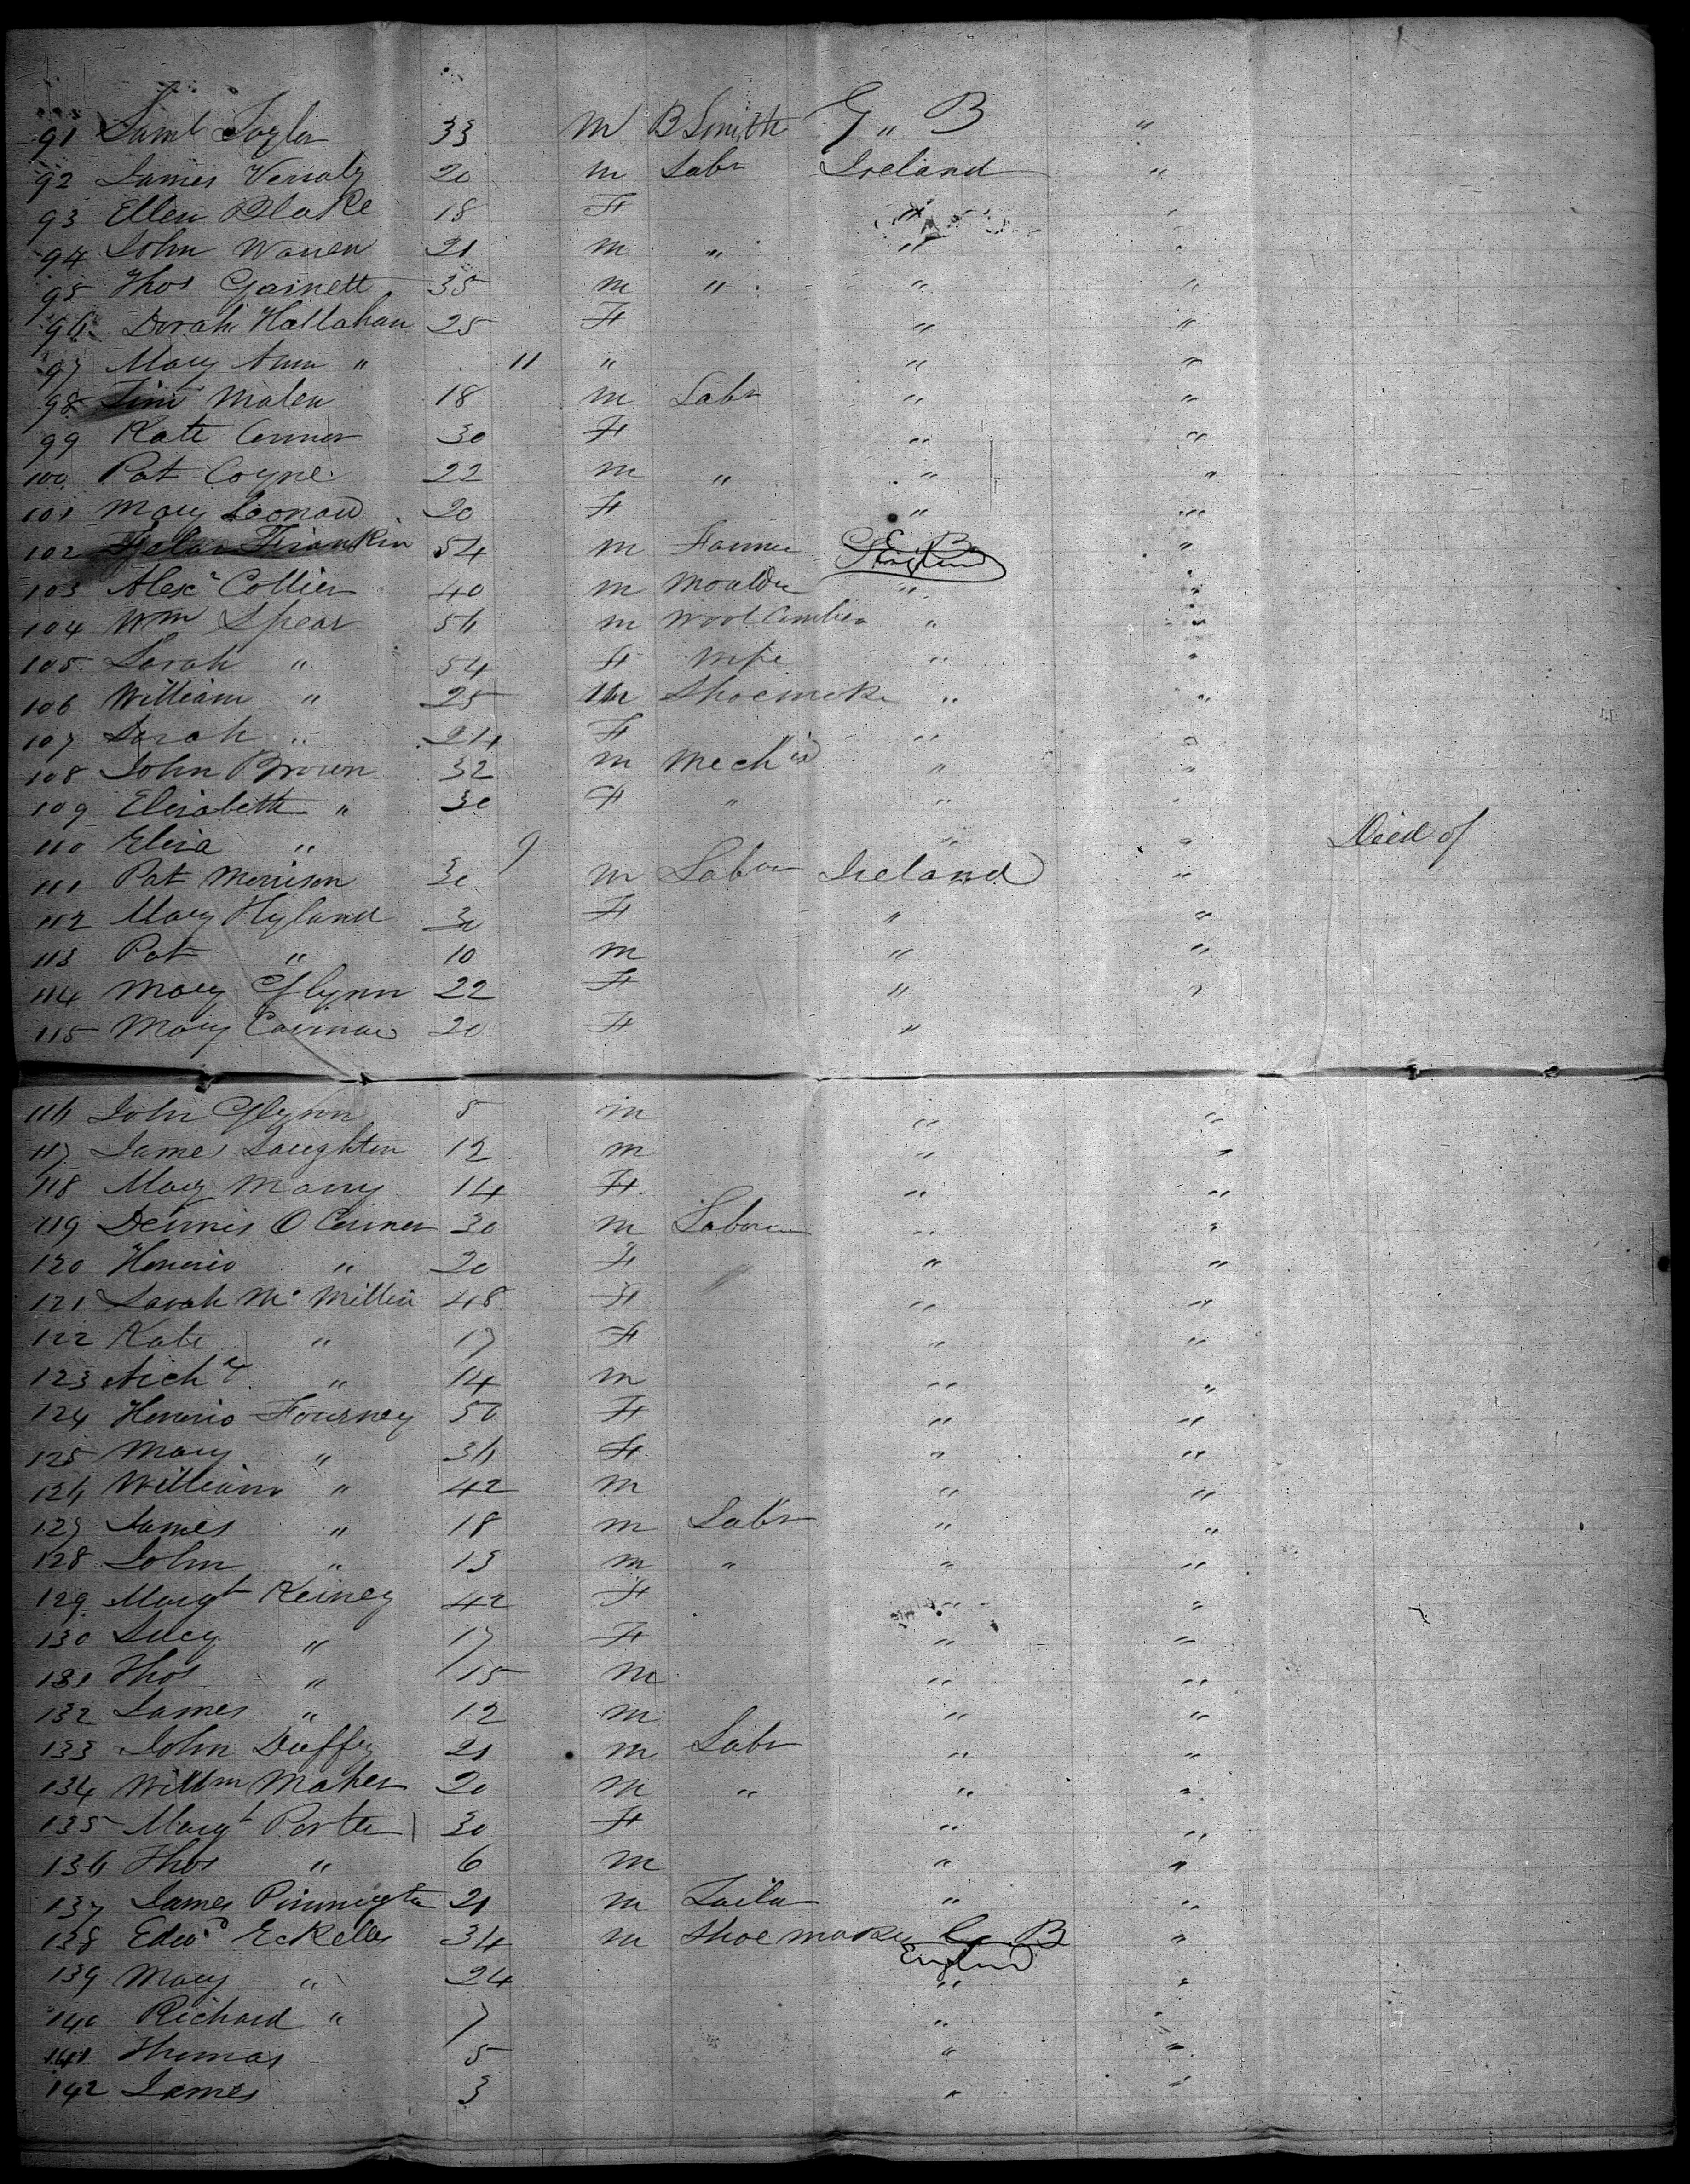 91 Saml Taylor 33 m B Smith G " B "
92 James 20 m Labr Ireland "
93 Ellen Blake 18 F " "
94 John Warren 21 m " " "
95 Thos Garnett 35 m " " "
96 Dorah Hallahan 25 F " "
97 Mary Ann " 11 " " "
98 Tim Malen 18 m Labr " "
99 Kate Connor 30 F " "
100 Pat Coyne 22 m " " "
101 Mary Leonard 20 F " "
102 54 m Farmer G B England "
103 Alexr Collier 40 m Moulder " "
104 Wm Spear 56 m Wool Comber " "
105 Sarah " 54 F Wife " "
106 William " 25 m Shoemaker " "
107 Sarah " 24 F " "
108 John Brown 32 m Mech " "
109 Elizabeth " 30 F " " "
110 Eliza " 9 " " Died of
111 Pat Morrison 30 m Labour Ireland "
112 Mary Hyland 30 F " "
113 Pat " 10 m " "
114 Mary Glynn 22 F " "
115 Mary 20 F "
116 John Glynn 5 m " "
117 James Laughton 12 m " "
118 Mary 14 F " "
119 Dennis O Conner 30 m Labour " "
120 Honorio " 20 F " "
121 Sarah Mc Millin 48 F " "
122 Kate " 17 F " "
123 " 14 m " "
124 Honorio Fourney 50 F " "
125 Mary " 36 F " "
126 William " 42 m " "
127 James " 18 m Labr " "
128 John " 13 m " " "
129 Margt Keiney 42 F " "
130 Lucy " 17 F " "
131 Thos " 15 m " "
132 James " 12 m " "
133 John Duffy 21 m Labr " "
134 Willm Maher 20 m " " "
135 Margt Porter 30 F " "
136 Thos " 6 m " "
137 James Pinnington 21 m Tailor " "
138 Edwd Eckells 34 m Shoemaker G B "
England
139 Mary " 24 " "
140 Richard " 7 " "
141 Thomas 5 " "
142 James 3 " "